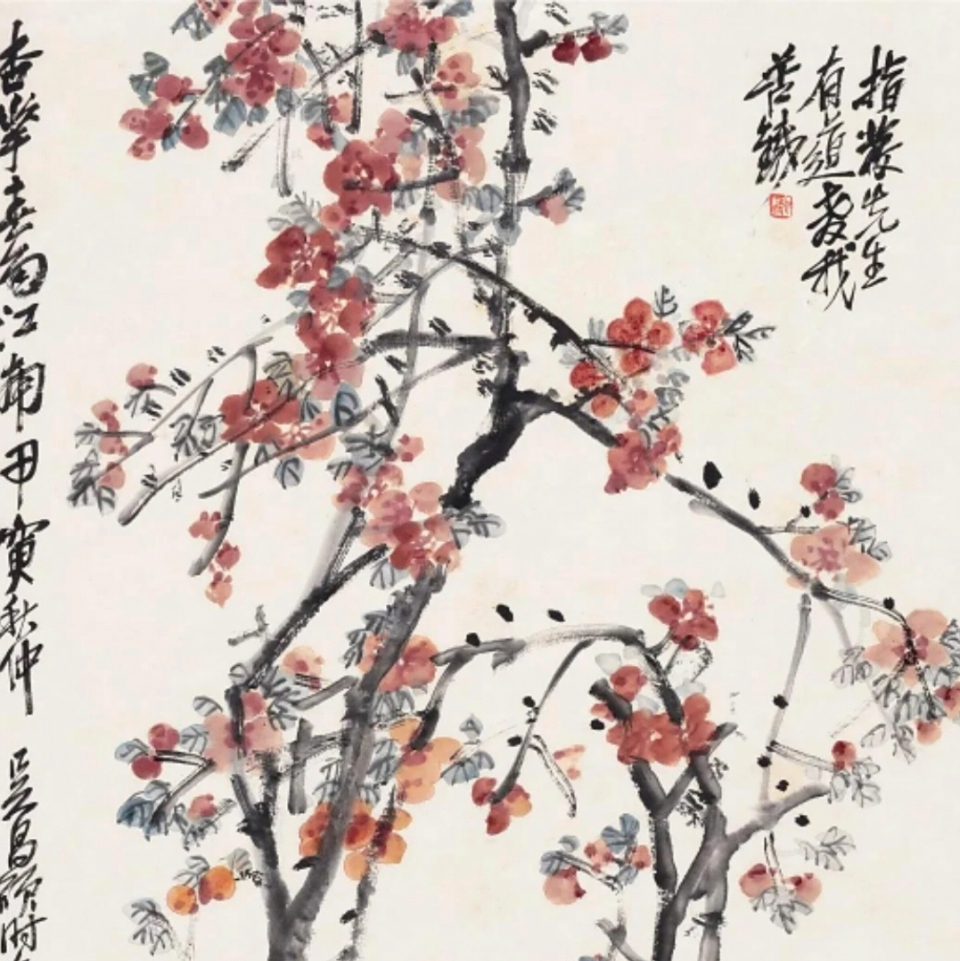 指先生
有道教我
苦鐵
杏華春雨江南甲寅秋仲 吳昌碩時